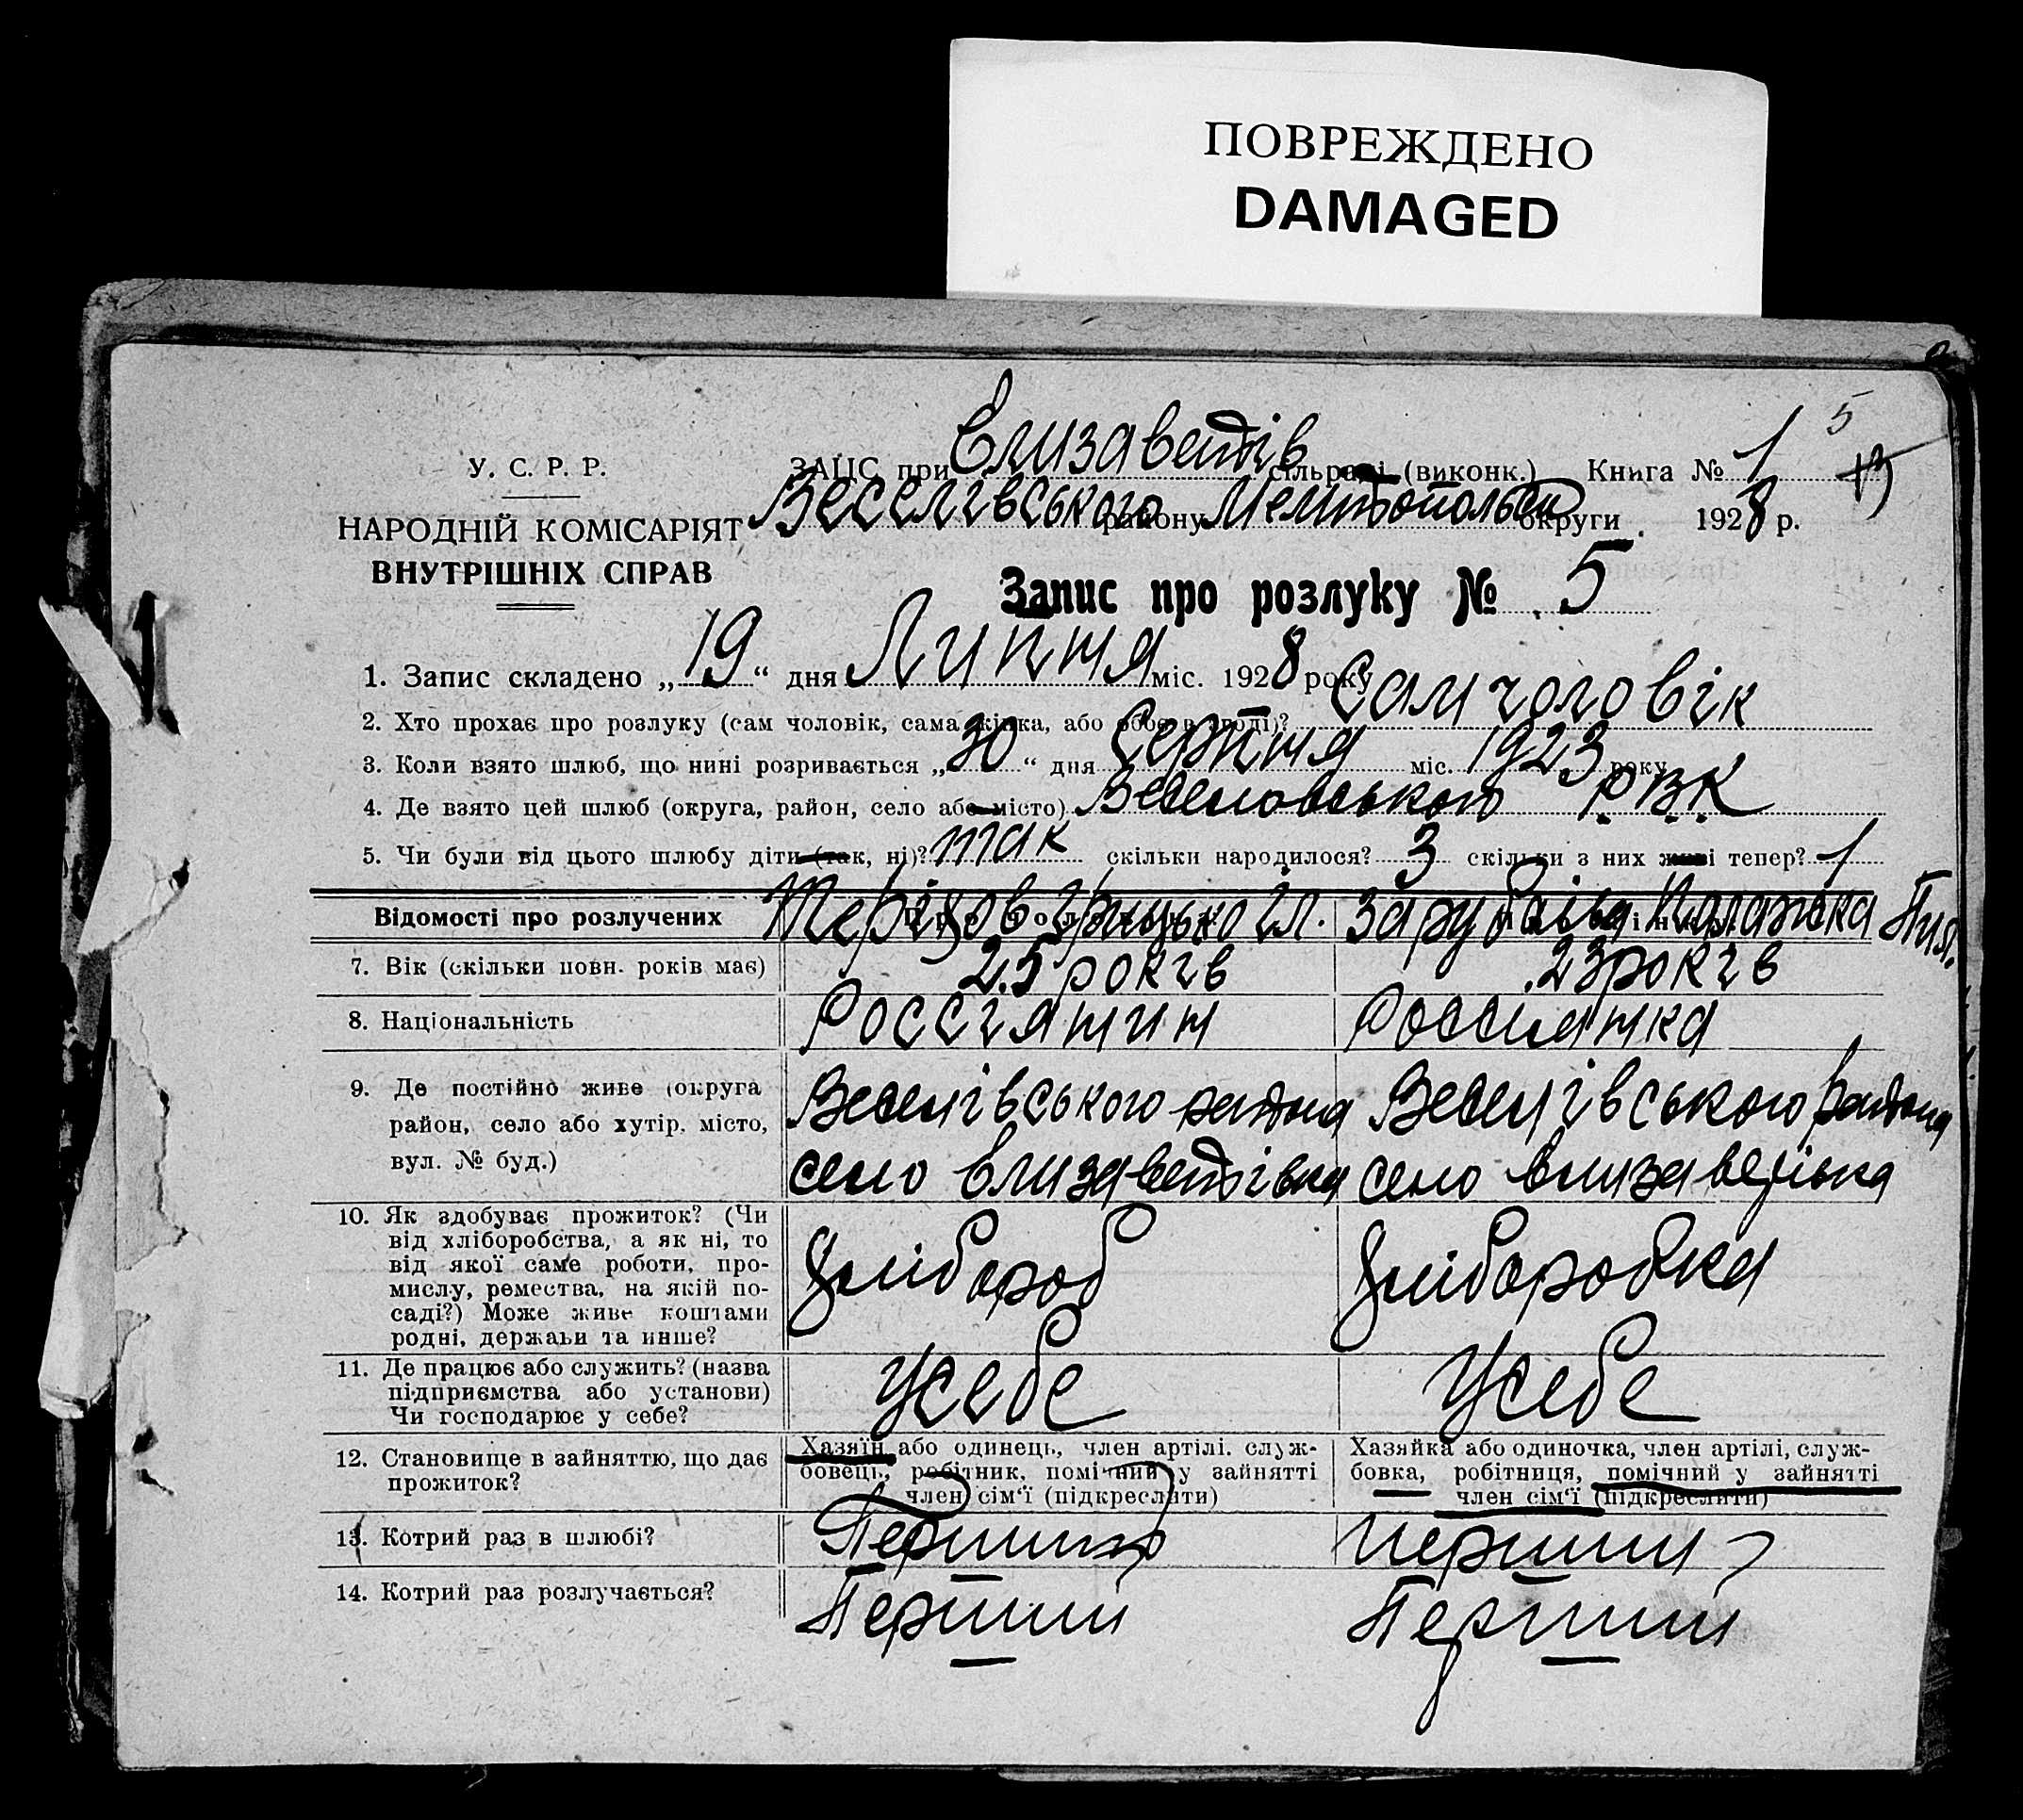 ПОВРЕЖДЕНО
DAMAGED
5
У. С. Р. Р.
ЗАЦС при Єлизаветів сільраді (виконк.) Книга № 1
13
НАРОДНІЙ КОМІСАРІЯТ
ВНУТРІШНІХ СПРАВ
Веселівського району Мелитопольськ округи 1928 р.
Запис про розлуку № 5
1. Запис складено „19“ дня Липня міс. 1928 року
2. Хто прохає про розлуку (сам чоловік, сама жінка, або обоє в згоді)? Сам чоловік
3. Коли взято шлюб, що нині розривається „30“ дня Серпня міс. 1923 року
4. Де взято цей шлюб (округа, район, село або місто) Веселовського Р.В.К
5. Чи були від цього шлюбу діти (так, ні)? так скільки народилося? 3 скільки з них живі тепер? 1
Відомості про розлучених
Грицько Іл.
7. Вік (скільки повн. років має) 25 років 23 років
8. Національність Россіянин Россиянка
9. Де постійно живе (округа район, село або хутір, місто, вул. № буд.)
Веселівського района
село Єлизаветівка
Веселівського района
село Єлизаветівка
10. Як здобуває прожиток? (Чи
від хліборобства, а як ні, то
від якої саме роботи, про-
мислу, ремества, на якій по-
саді?) Може живе коштами
родні, держави та инше?
Хлібороб
Хлібороб­ка
11. Де працює або служить? (назва
підприємства або установи)
Чи господарює у себе?
Усебе
Усебе
12. Становище в зайняттю, що дає
прожиток?
Хазяїн або одинець, член артілі, служ-
бовець, робітник, помічний у зайнятті
член сім‘ї (підкреслити)
Хазяйка або одиночка, член артілі, служ-
бовка, робітниця, помічний у зайнятті
член сім‘ї (підкреслити)
13. Котрий раз в шлюбі? Перший перший
14. Котрий раз розлучається? Перший Перший